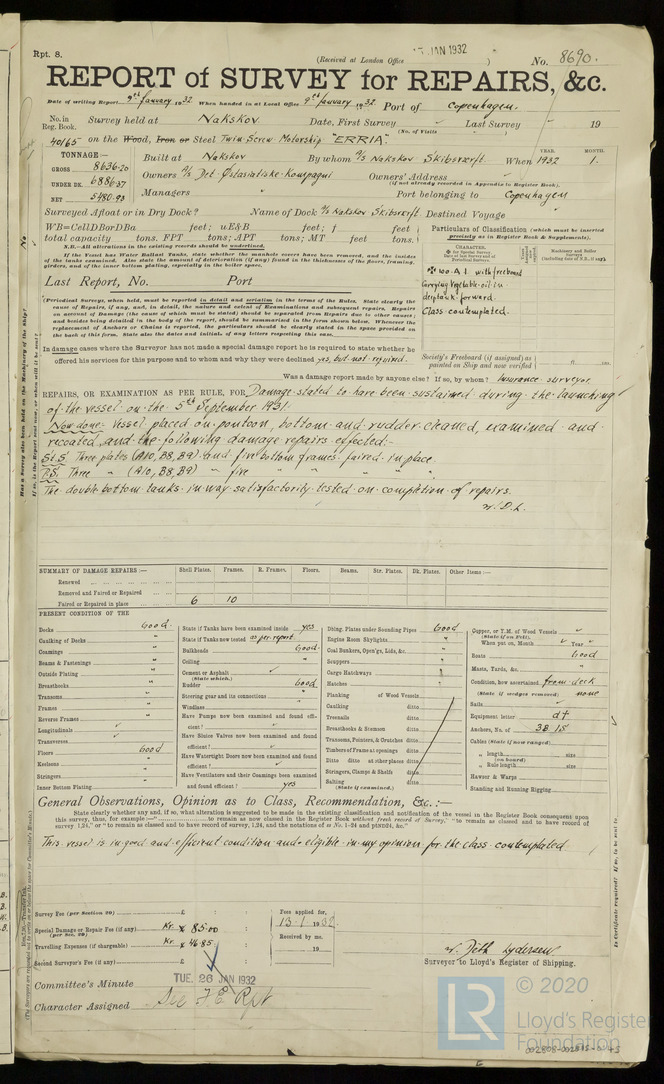 Rpt. 8.
(Received at London Office JAN 1932 ) No. 8690.
REPORT of SURVEY for REPAIRS, &c.
Date of writing Report 9th January 1932 When handed in at Local Office 9th January 1932 Port of Copenhagen.
No. in Reg. Book. Survey held at Nakskov Date, First Survey Last Survey 19
(No. of Visits
40165 on the Wood, Iron or Steel Twin Screw Motorship "ERRIA".
TONNAGE:—
GROSS 8636.20
UNDER DK. 6886.37
NET 5480.93
Built at Nakskov By whom A/S Nakskov Skibsværft. When YEAR. 1932 MONTH. 1.
Owners A/S Det Østasiatiske Kompagni Owners' Address
(if not already recorded in Appendix to Register Book).
Managers " Port belonging to Copenhagen
Surveyed Afloat or in Dry Dock? Name of Dock A/S Nakskov Skibsværft. Destined Voyage
WB=CellDBorDBa feet; uE&B feet; f feet
total capacity tons. FPT tons; APT tons; MT feet tons.
N.B.—All alterations in the existing records should be underlined.
If the Vessel has Water Ballast Tanks, state whether the manhole covers have been removed, and the insides of the tanks examined. Also state the amount of deterioration (if any) found in the thicknesses of the floors, framing, girders, and of the inner bottom plating, especially in the boiler space.
Particulars of Classification (which must be inserted precisely as in Register Book & Supplements).
CHARACTER.
✠ 100 A 1 with freeboard
carrying vegetable oil in
deeptank forward.
Class contemplated.
Last Report, No. Port
(Periodical Surveys, when held, must be reported in detail and seriatim in the terms of the Rules. State clearly the cause of Repairs, if any, and, in detail, the nature and extent of Examinations and subsequent repairs. Repairs on account of Damage (the cause of which must be stated) should be separated from Repairs due to other causes; and besides being detailed in the body of the report, should be summarised in the form shown below. Whenever the replacement of Anchors or Chains is reported, the particulars should be clearly stated in the space provided on the back of this form. State also the dates and initials of any letters respecting this case.
In damage cases where the Surveyor has not made a special damage report he is required to state whether he
offered his services for this purpose and to whom and why they were declined yes, but not required.
Society's Freeboard (if assigned) as painted on Ship and now verified
Was a damage report made by anyone else? If so, by whom? Insurance surveyor
REPAIRS, OR EXAMINATION AS PER RULE, FOR Damage stated to have been sustained during the launching
of the vessel on the 5th September 1931.
Now done: Vessel placed on pontoon, bottom and rudder cleaned, examined and
recoated and the following damage repairs effected:-
St. S. Three plates (A10, B8, B9) and five bottom frames faired in place
P.S. Three " (A10, B8, B9) " five " " " "
The double bottom tanks in way satisfactorily tested on completion of repairs.
W.D.L.
SUMMARY OF DAMAGE REPAIRS:— Shell Plates. Frames. R. Frames. Floors. Beams. Str. Plates. Dk. Plates. Other Items:—
Renewed
Removed and Faired or Repaired
Faired or Repaired in place 6 10
PRESENT CONDITION OF THE
Decks Good
Caulking of Decks "
Coamings "
Beams & Fastenings "
Outside Plating "
Breasthooks "
Transoms "
Frames "
Reverse Frames "
Longitudinals
Transverses
Floors Good
Keelsons "
Stringers "
Inner Bottom Plating "
State if Tanks have been examined inside yes
State if Tanks now tested as per report
Bulkheads Good
Ceiling "
Cement or Asphalt
(State which.)
Rudder Good
Steering gear and its connections "
Windlass "
Have Pumps now been examined and found efficient?
Have Sluice Valves now been examined and found efficient?
Have Watertight Doors now been examined and found efficient?
Have Ventilators and their Coamings been examined and found efficient? yes
Dblng. Plates under Sounding Pipes Good
Engine Room Skylights "
Coal Bunkers, Open'gs, Lids, &c.
Scuppers "
Cargo Hatchways "
Hatches "
Planking of Wood Vessels
Caulking ditto
Treenails ditto
Breasthooks & Stemson ditto
Transoms, Pointers, & Crutches ditto
Timbers of Frame at openings ditto
Ditto ditto at other places ditto
Stringers, Clamps & Shelfs ditto
Salting ditto
(State if examined.)
Copper, or Y.M. of Wood Vessels
(State if on Felt).
When put on, Month Year
Boats Good
Masts, Yards, &c. "
Condition, how ascertained from deck
(State if wedges removed) none
Sails
Equipment letter d†
Anchors, No. of 3B. 1S
Cables (State if now ranged)
„ length size
(on board)
„ Rule length size
Hawser & Warps
Standing and Running Rigging
General Observations, Opinion as to Class, Recommendation, &c.:—
State clearly whether any and, if so, what alteration is suggested to be made in the existing classification and notification of the vessel in the Register Book consequent upon
This vessel is in good and efficient condition and eligible in my opinion for the class contemplated
Survey Fee (per Section 29) £
Special Damage or Repair Fee (if any) Kr. 85.00
(per Sec. 29)
Travelling Expenses (if chargeable) Kr. 46.85
Second Surveyor's Fee (if any) £
Fees applied for,
13.1 1932
Received by me,
19
Surveyor to Lloyd's Register of Shipping.
Committee's Minute TUE. 26 JAN 1932
Character Assigned See F.E. Rpt
LR © 2020
Lloyd's Register
Foundation